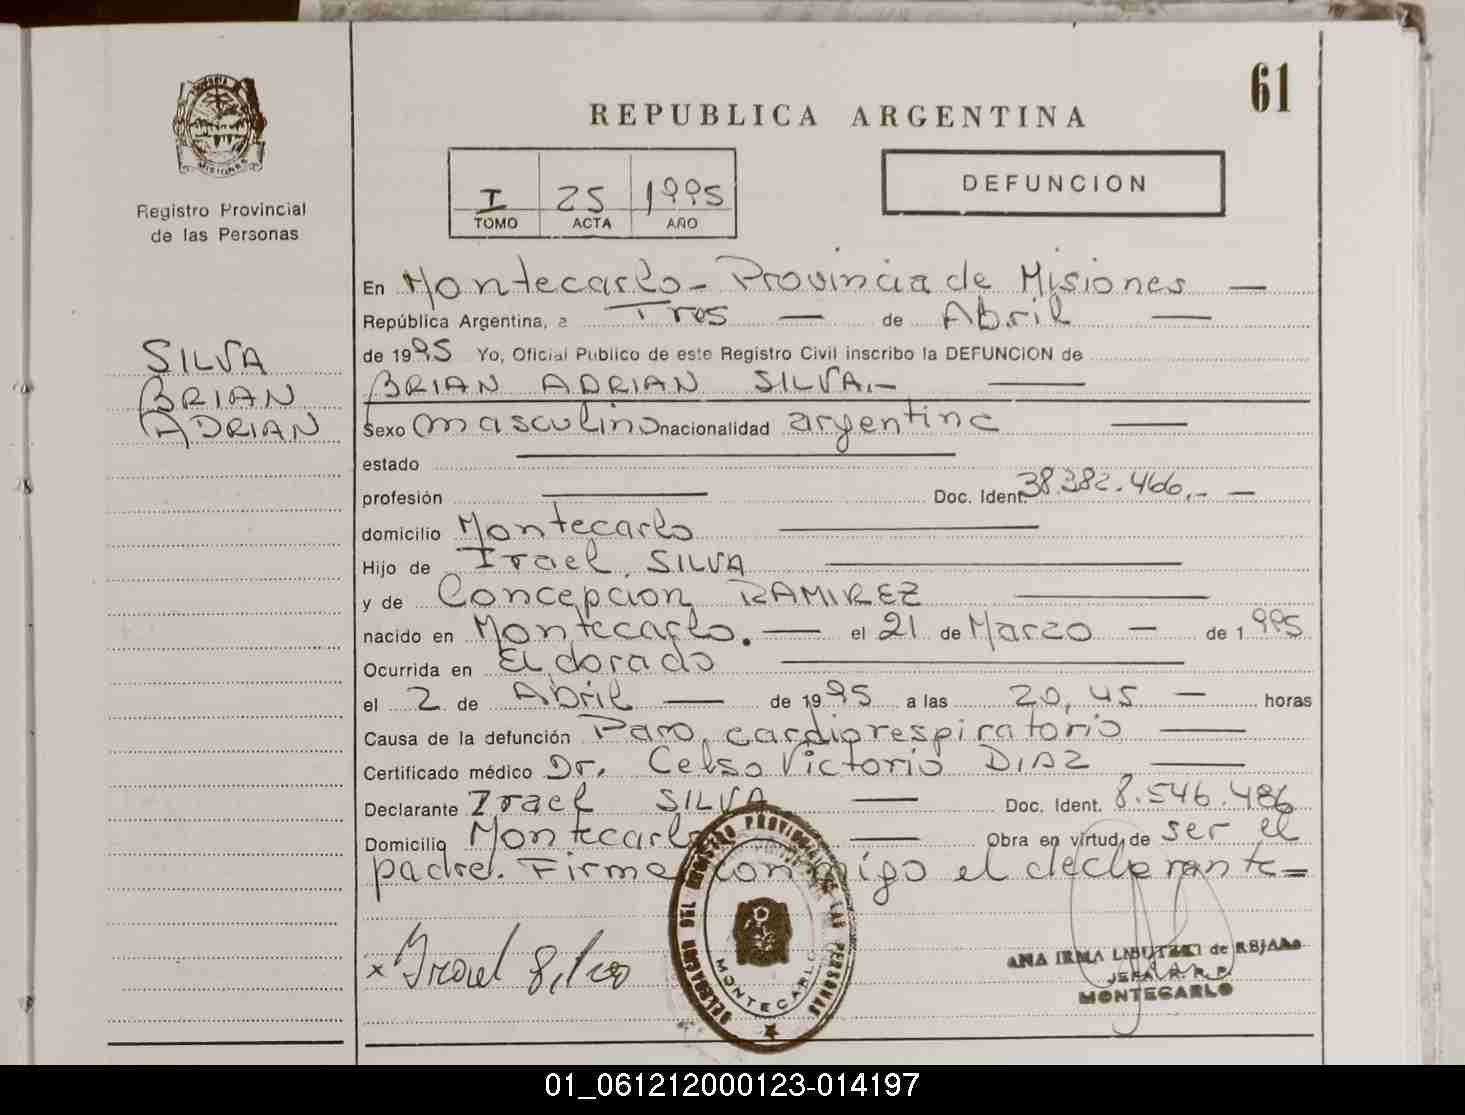 61
REPUBLICA ARGENTINA
DEFUNCION
I 25 1995
TOMO ACTA AÑO
MISIONES
Registro Provincial
de las Personas
SILVA
BRIAN
ADRIAN
En Montecarlo - Provincia de Misiones —
República Argentina, a Tres — de Abril —
de 1995 Yo, Oficial Público de este Registro Civil inscribo la DEFUNCION de
BRIAN ADRIAN SILVA.- —
Sexo masculino nacionalidad argentina —
estado —
profesión — Doc. Ident. 38.382.466.- —
domicilio Montecarlo —
Hijo de Irael SILVA —
y de Concepcion RAMIREZ —
nacido en Montecarlo. — el 21 de Marzo — de 1995
Ocurrida en Eldorado —
el 2 de Abril — de 1995 a las 20,45 — horas
Causa de la defunción Paro cardiorespiratorio —
Certificado médico Dr. Celso Victorio DIAZ —
Declarante Irael SILVA — Doc. Ident. 8.546.486
Domicilio Montecarlo — Obra en virtud de ser el
padre. Firma conmigo el declarante =
x Irael Silva
DELEGACION DEL REGISTRO PROVINCIAL DE LAS PERSONAS
MONTECARLO
ANA IRMA de
JEFA R.P.P.
MONTECARLO
01_061212000123-014197